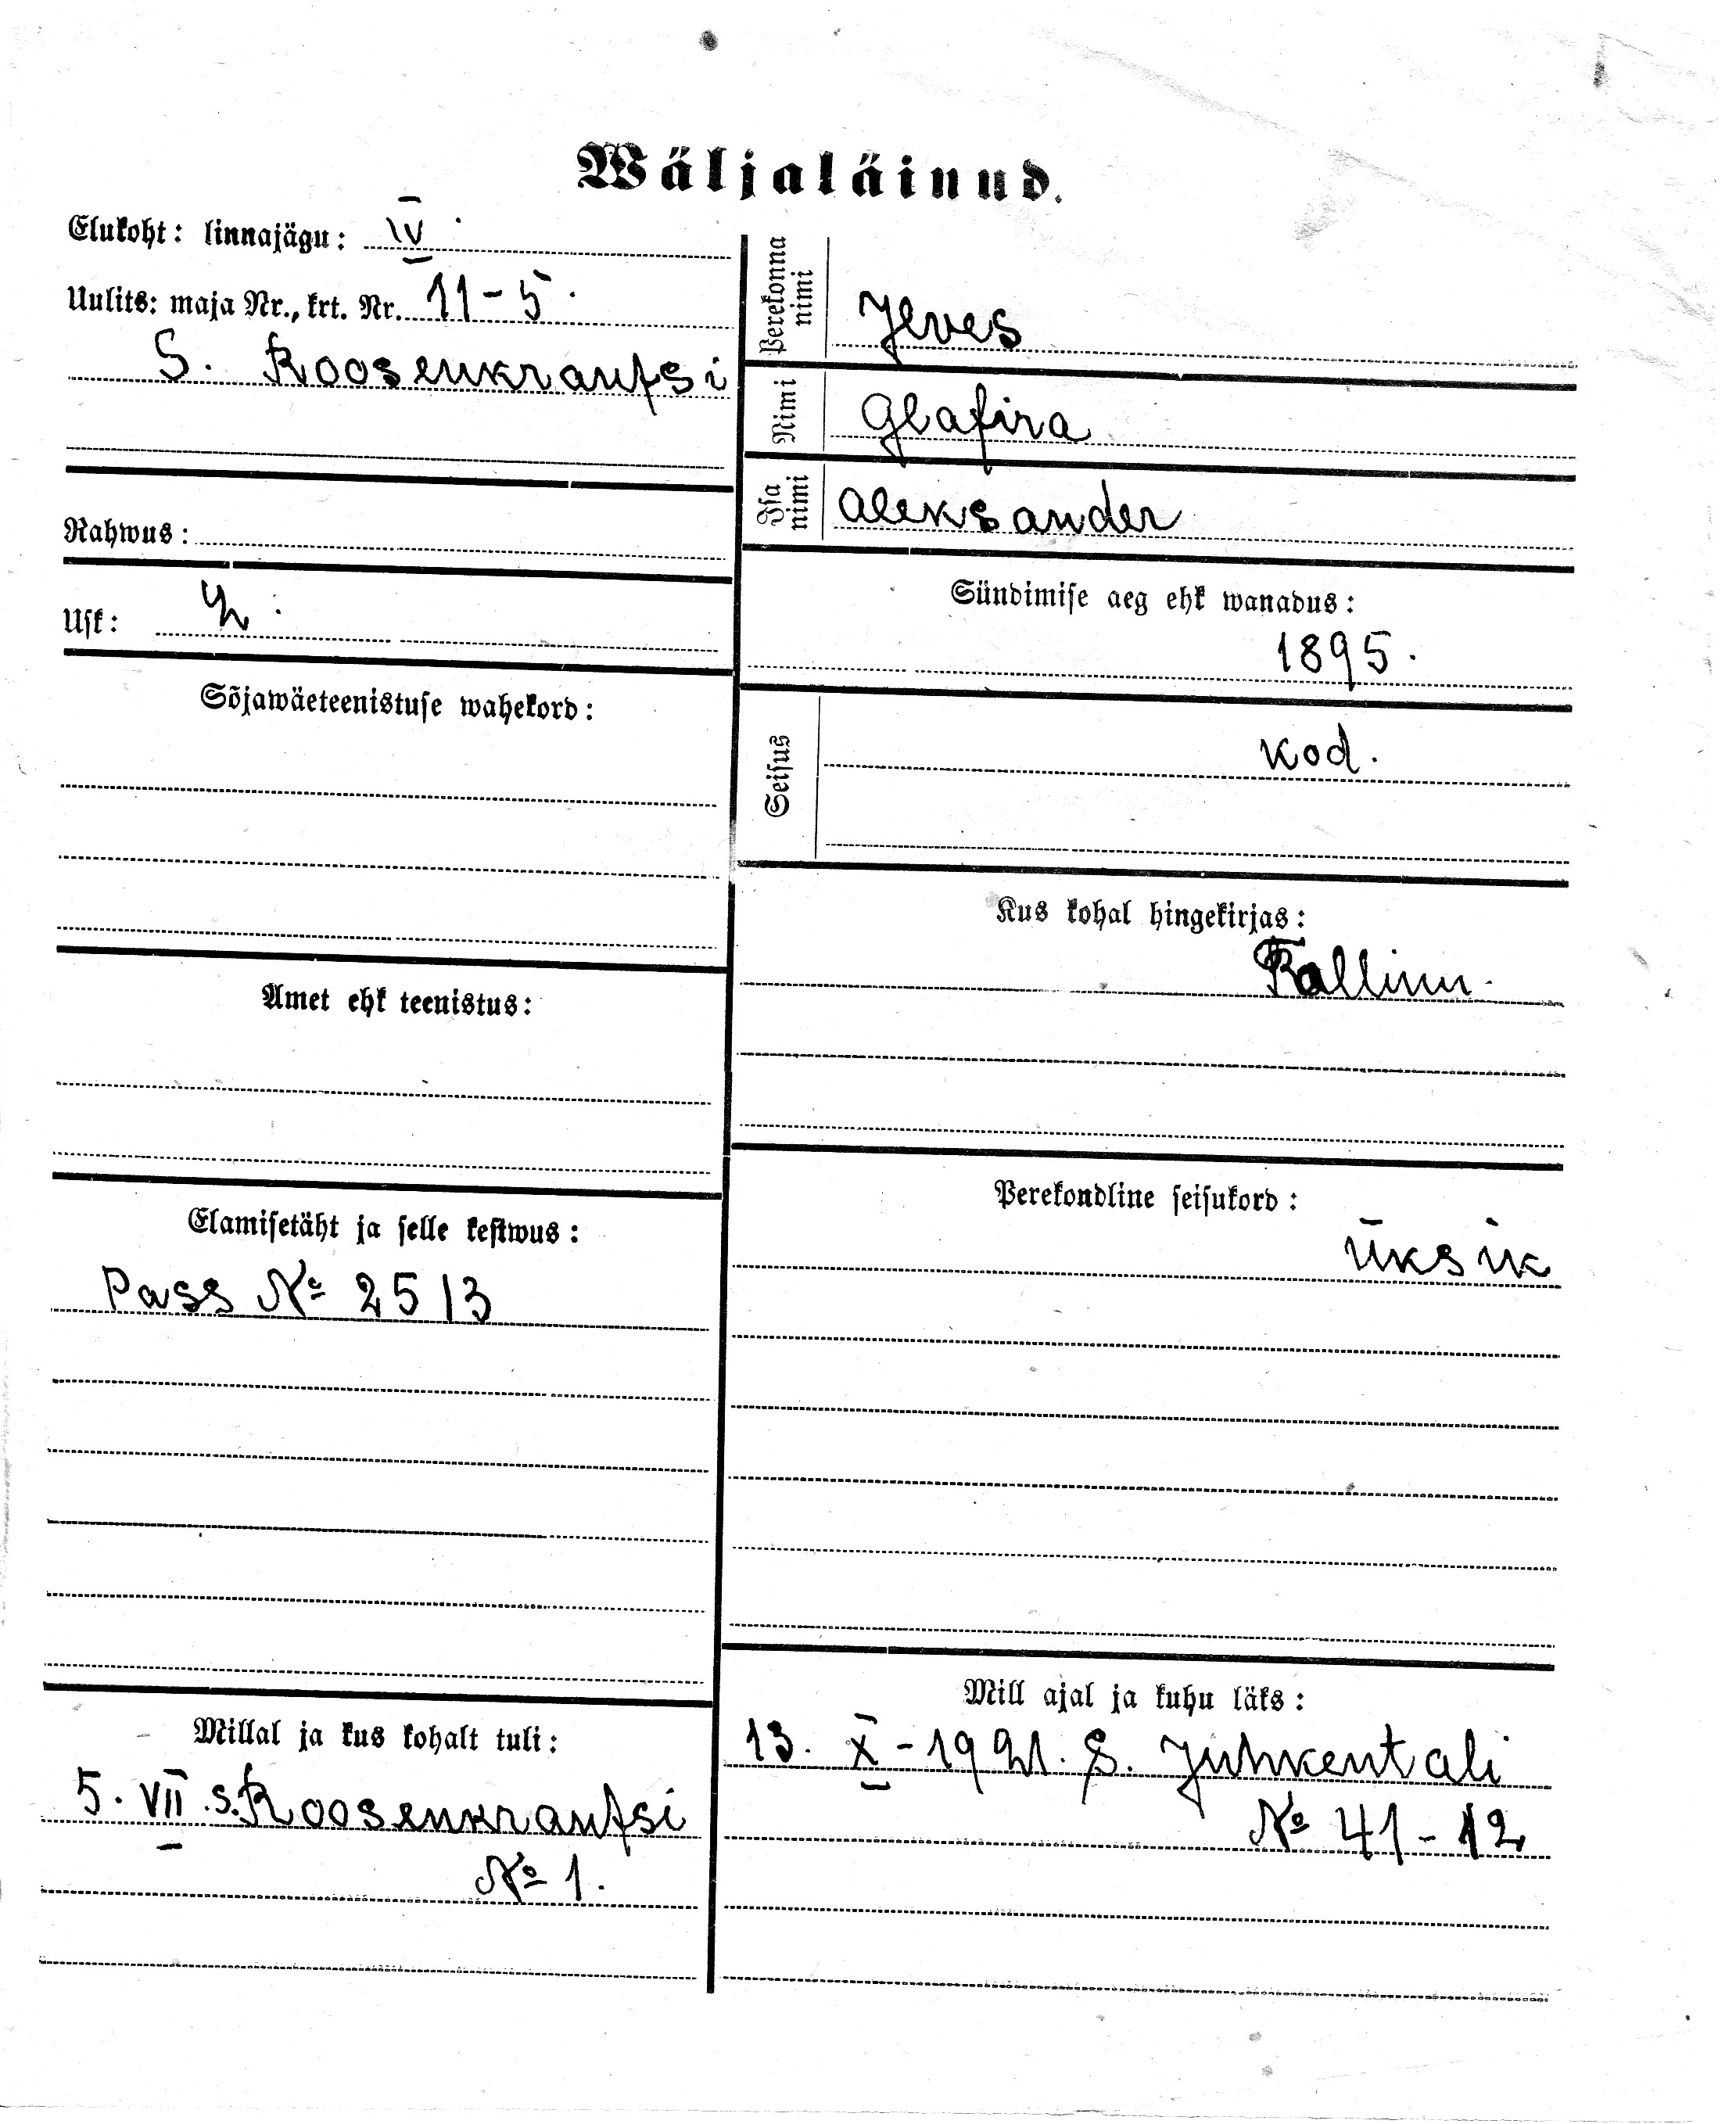 Wäljaläinud.
Elukoht: linnajägu: IV.
Uulits: maja Nr., krt. Nr. 11-5.
S. Roosenkrantsi
Rahwus:
Usk:
Sõjawäeteenistuse wahekord:
Amet ehk teenistus:
Elamisetäht ja selle kestwus:
Pass № 2513
Millal ja kus kohalt tuli:
5. VII. S. Roosenkrantsi
№ 1.
Perekonna nimi
Ilves
Nimi
Glafira
Isa nimi
Aleksander
Sündimise aeg ehk wanadus:
1895.
Seisus
kod.
Kus kohal hingekirjas:
Tallinn.
Perekondline seisukord:
üksik
Mill ajal ja kuhu läks:
13. X-1921. S. Juhkentali
№ 41-12